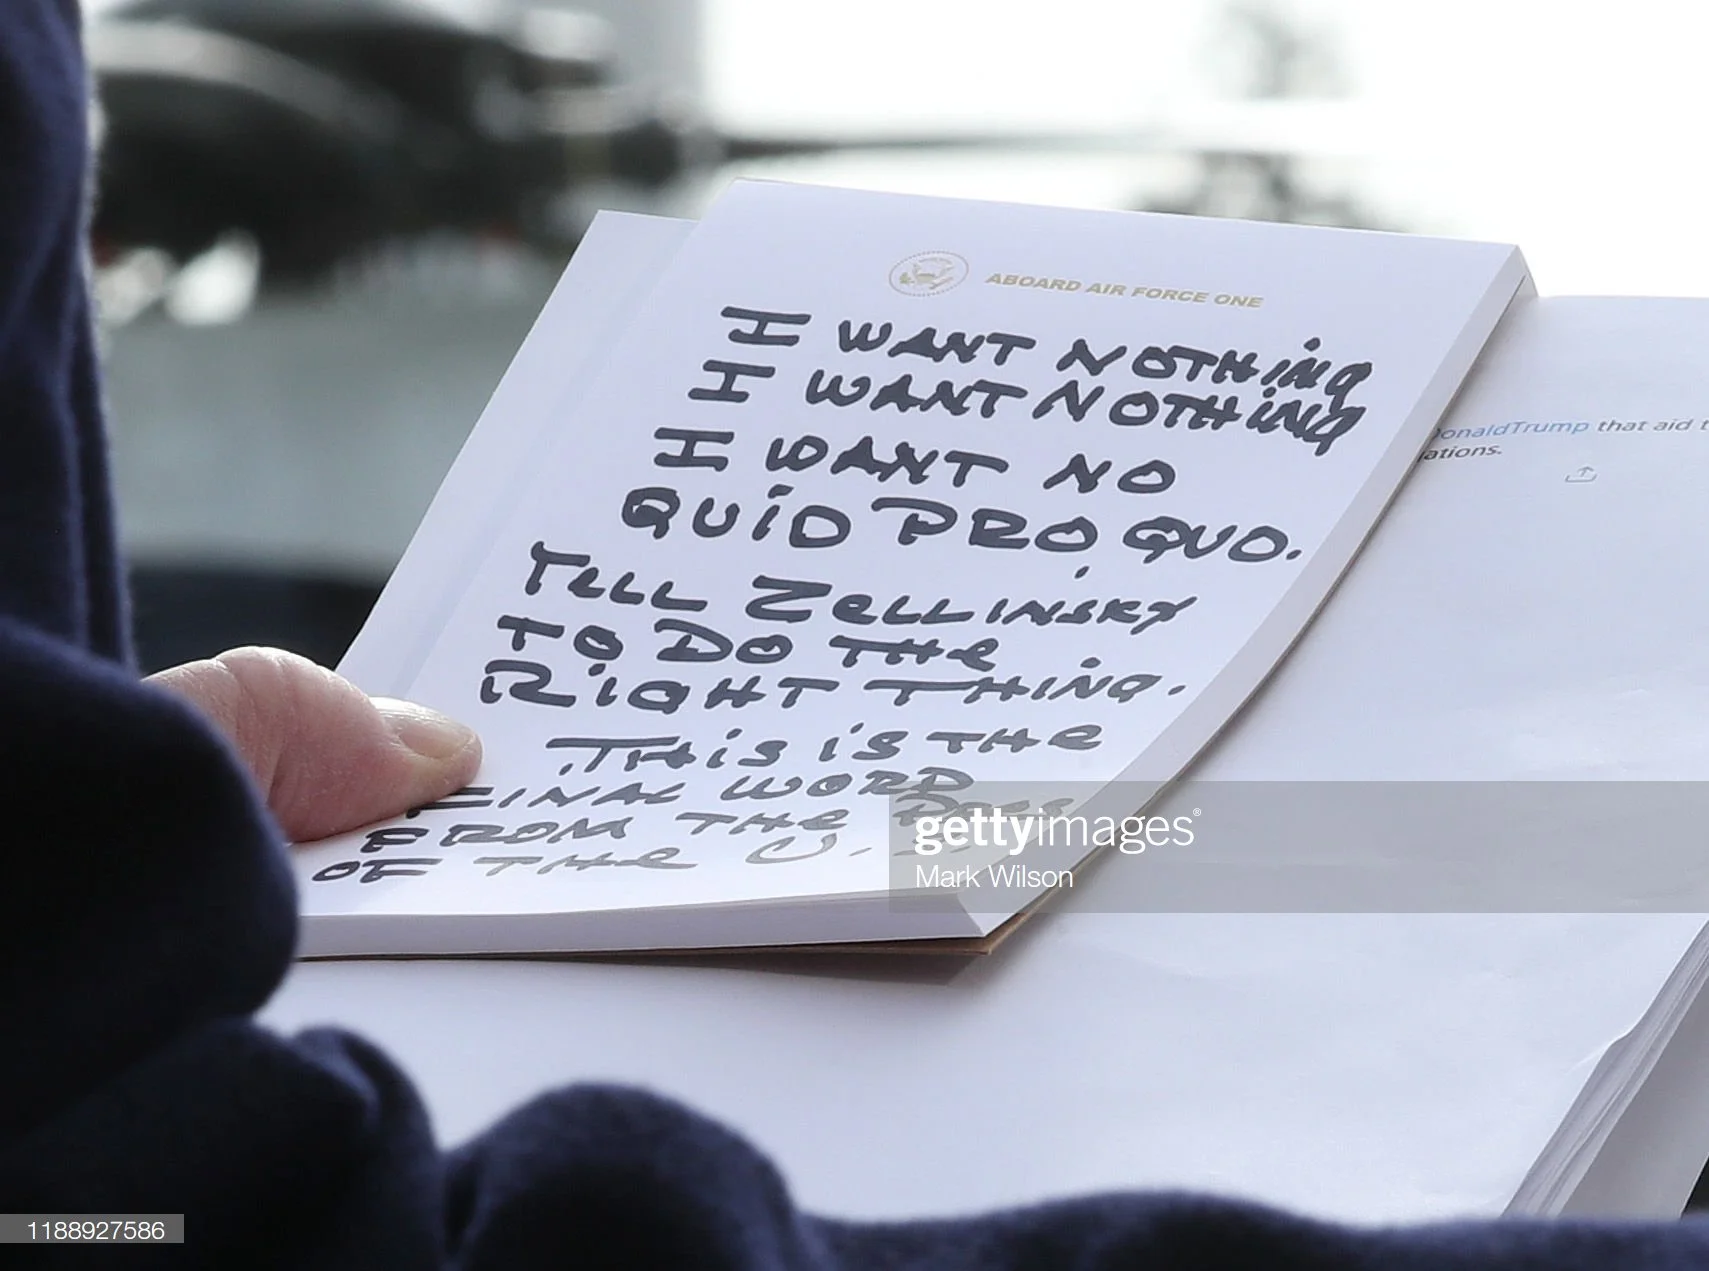 ABOARD AIR FORCE ONE
I WANT NOTHING
I WANT NOTHING
I WANT NO
QUID PRO QUO.
TELL ZELLINSKY
TO DO THE
RIGHT THING.
THIS IS THE
FINAL WORD
FROM THE PRES
OF THE U.S.
onaldTrump that aid t
ations.
gettyimages®
Mark Wilson
1188927586